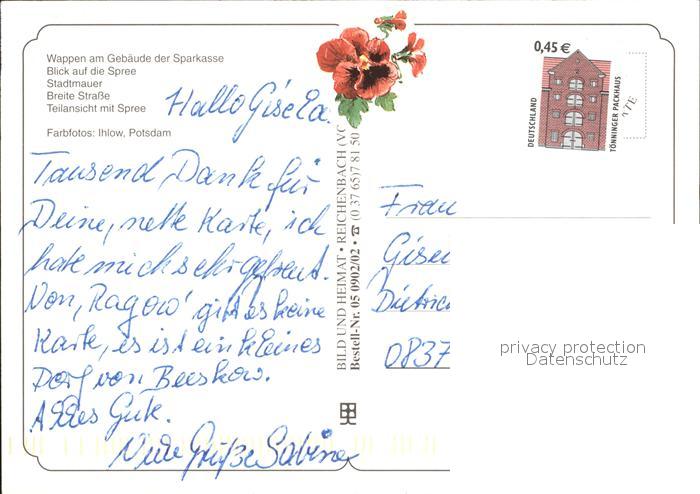 Wappen am Gebäude der Sparkasse
Blick auf die Spree
Stadtmauer
Breite Straße
Teilansicht mit Spree
Farbfotos: Ihlow, Potsdam
Hallo Gisela.
Tausend Dank für
Deine, nette Karte, ich
habe mich sehr gefreut.
Von, Ragow' gibt es keine
Karte, es ist ein kleines
Dorf von Beeskow.
Alles Gute.
Viele Grüße Sabine
BILD UND HEIMAT • REICHENBACH (VO
Bestell-Nr. 05 0902/02 • ☎ (0 37 65) 7 81 50
0,45 €
DEUTSCHLAND
TÖNNINGER PACKHAUS
Frau
Gisel
Dietric
0837
privacy protection
Datenschutz